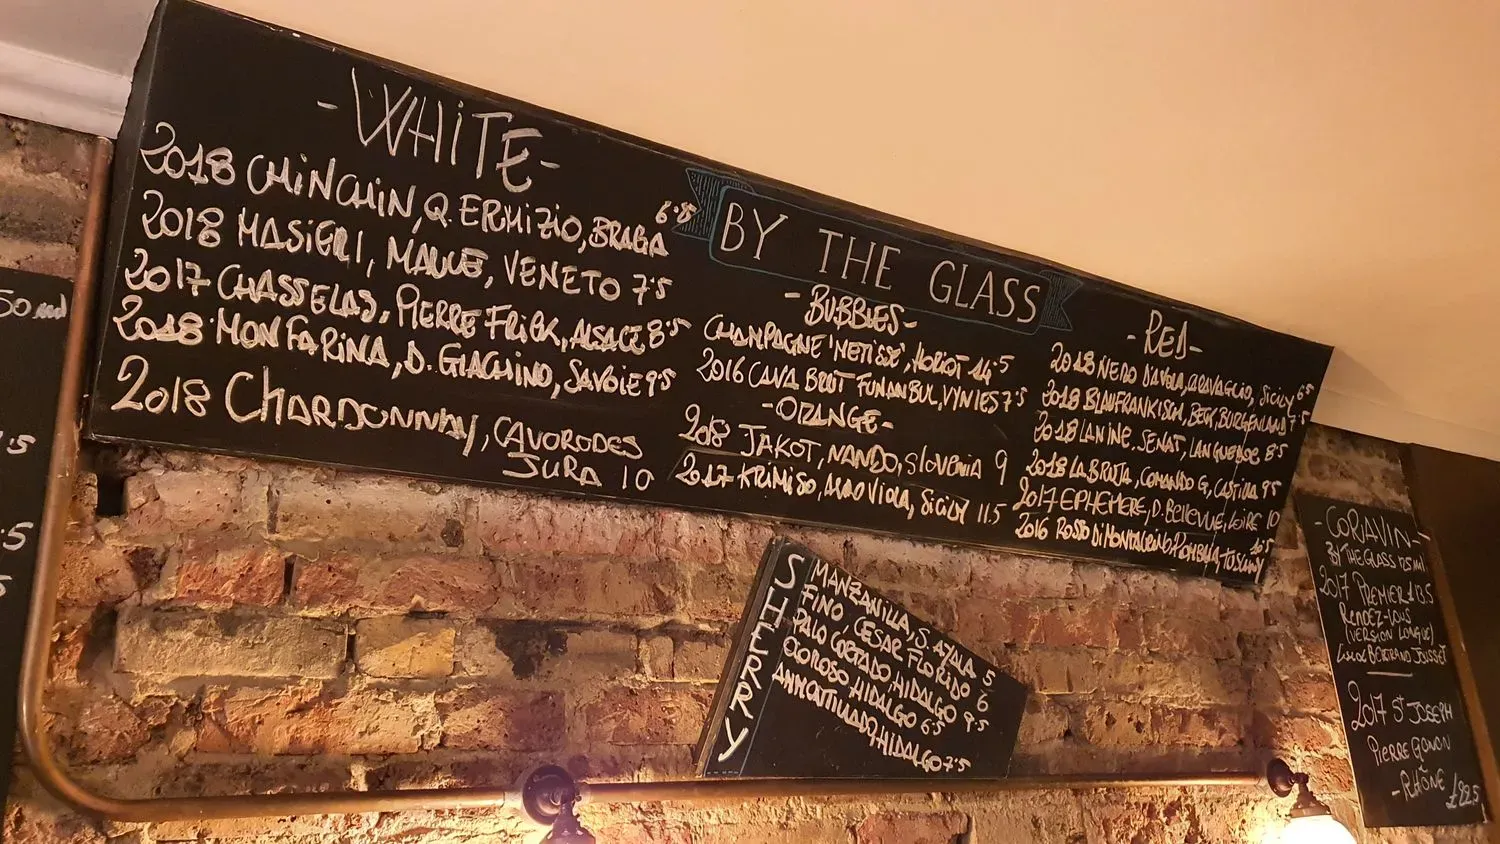 -WHITE-
2018 CHIN CHIN, Q. ERMIZIO, BRAGA 6.5
2018 MASIERI, MAULE, VENETO 7.5
2017 CHASSELAS, PIERRE FRICK, ALSACE 8.5
2018 MONFARINA, D. GIACHINO, SAVOIE 9.5
2018 CHARDONNAY, CAVORODES
JURA 10
BY THE GLASS
-BUBBLES-
CHAMPAGNE 'METISSE', NORIOT 14.5
2016 CAVA BRUT FUNAMBUL, VYNIES 7.5
-ORANGE-
2018 JAKOT, NANDO, SLOVENIA 9
2017 KRIMISO, VIOLA, SICILY 11.5
-RED-
2018 NERO D'AVOLA, CARAVAGLIO, SICILY 6.5
2018 BLAUFRANKISCH, BECK, BURGENLAND 7.5
2018 LANINE, SENAT, LANGUEDOC 8.5
2018 LA BRUJA, COMANDO G, CASTILLA 9.5
2017 EPHEMERE, D. BELLEVUE, LOIRE 10
2016 ROSSO DI MONTALCINO, PIOMBAIA, TUSCANY 10.5
SHERRY
MANZANILLA, S. AYALA 5
FINO, CESAR FLORIDO 6
PALO CORTADO, HIDALGO 9.5
OLOROSO, HIDALGO 6.5
AMONTILLADO, HIDALGO 7.5
-CORAVIN-
BY THE GLASS 125ml
2017 PREMIER £13.5
RENDEZ-VOUS
(VERSION LONGUE)
BERTRAND JOUSSET
2017 ST JOSEPH
PIERRE GONON
-RHÔNE £22.5
50ml
.5
.5